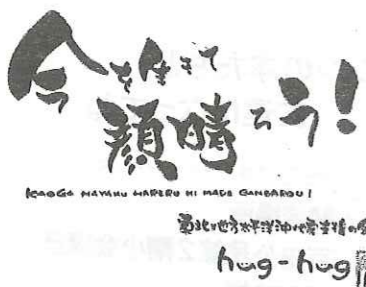 今を生きて
顔晴ろう!
KAOGA HAYAKU HARERU HI MADE GANBAROU!
東北地方太平洋沖地震支援の会
hug-hug